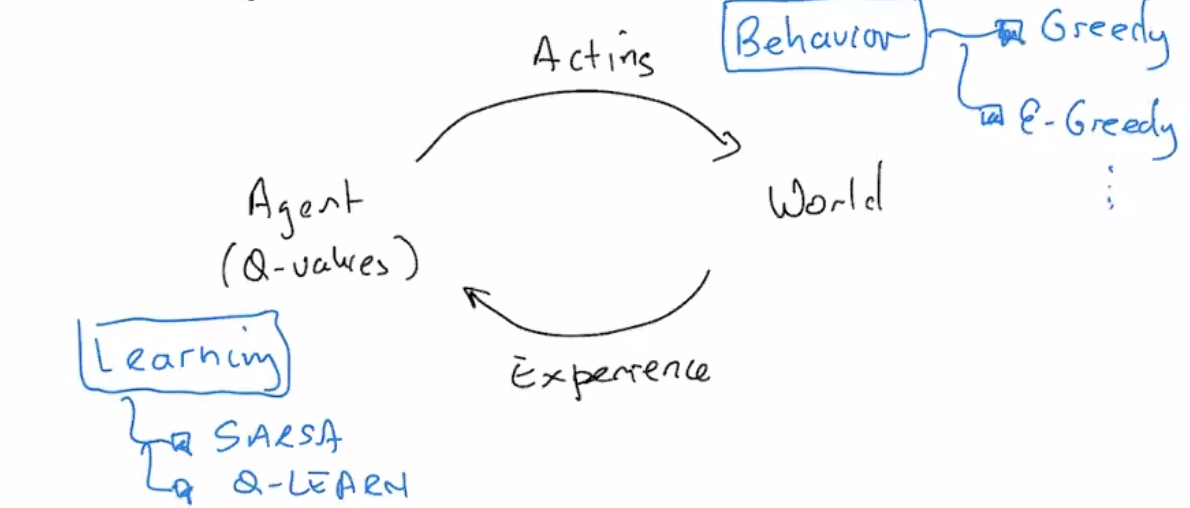 Acting
Behavior
Greedy
ε-Greedy
Agent
(Q-values)
World
Experience
Learning
SARSA
Q-LEARN